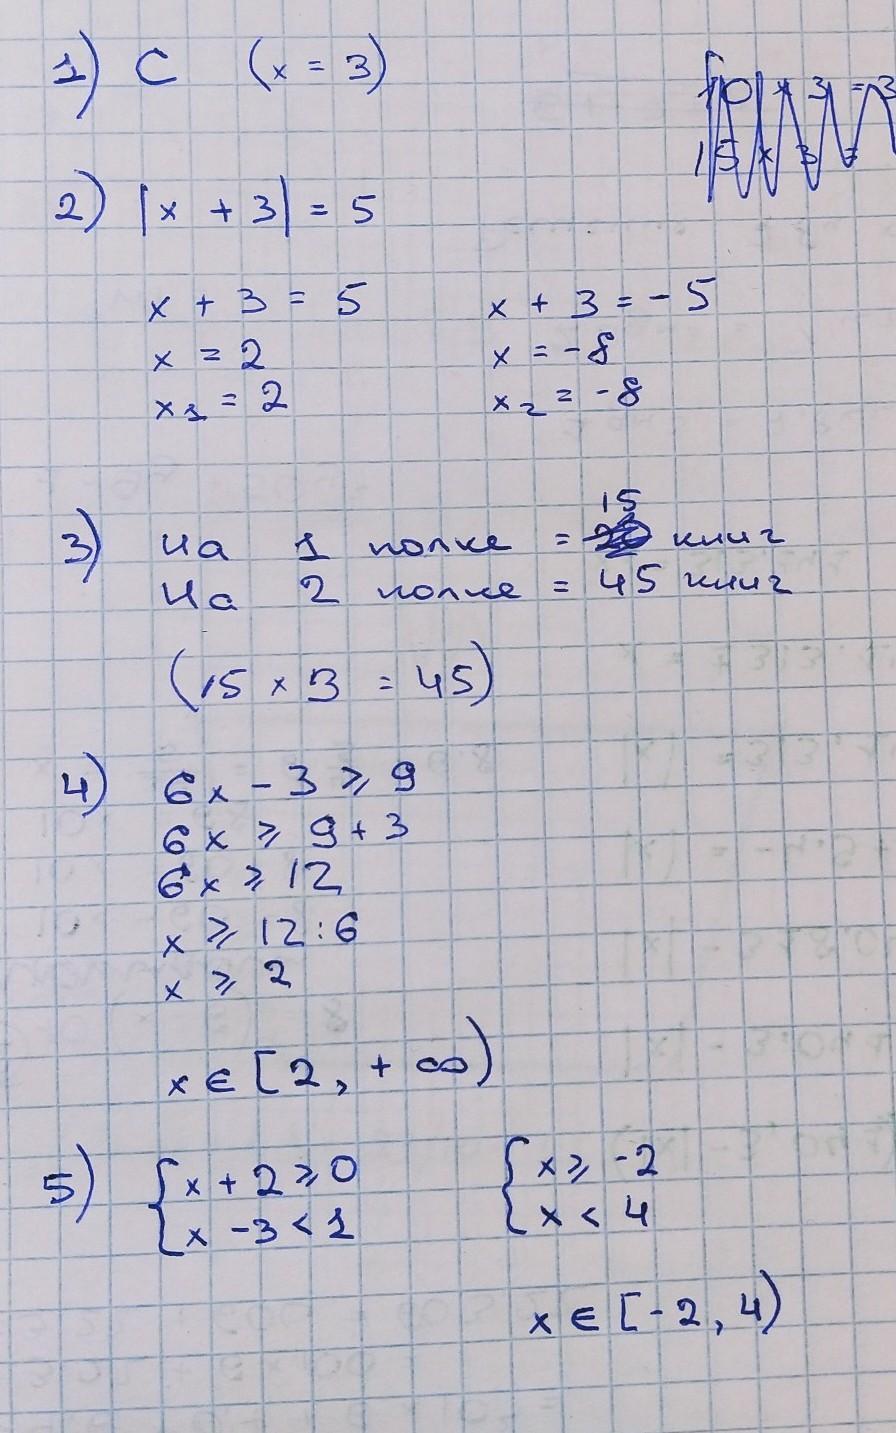 1) C (x = 3)
2) |x + 3| = 5
x + 3 = 5 x + 3 = -5
x = 2 x = -8
x₁ = 2 x₂ = -8
3) На 1 полке = 15 книг
На 2 полке = 45 книг
(15 × 3 = 45)
4) 6x - 3 ⩾ 9
6x ⩾ 9 + 3
6x ⩾ 12
x ⩾ 12:6
x ⩾ 2
x ∈ [2, + ∞)
5) { x + 2 ⩾ 0 { x ⩾ -2
x - 3 < 1 x < 4
x ∈ [-2, 4)